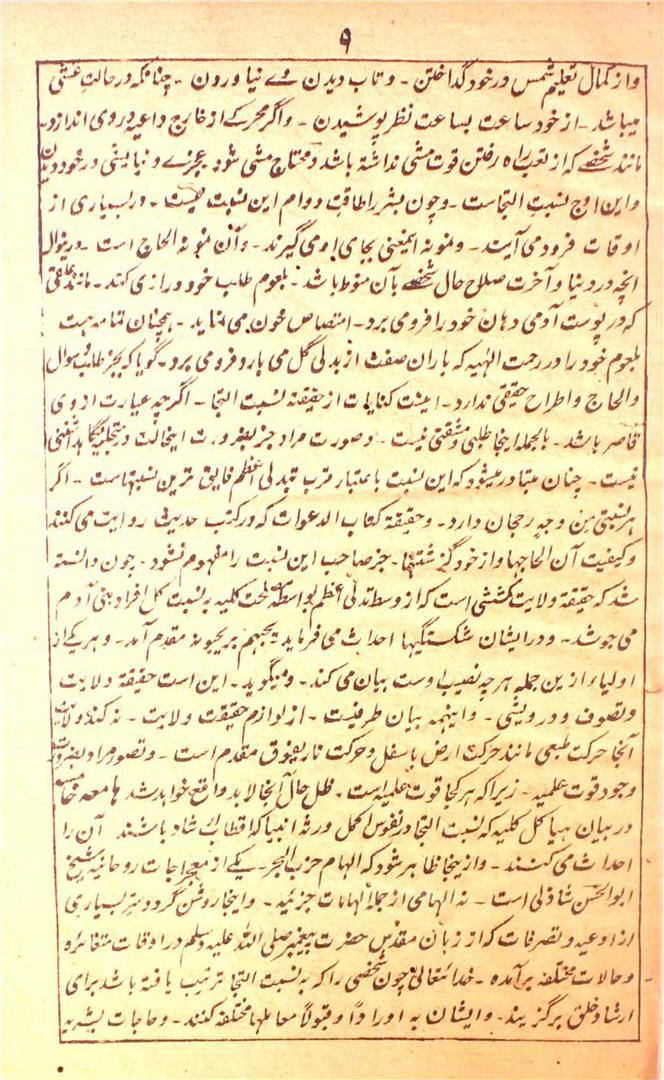 ۹
و از کمال تعلیم شمس در خود گداختن - و تاب دیدن وے نیاورون - چنانکه در حالت غشی
میباشد - از خود ساعت بساعت نظر پوشیدن - و اگر محرکے از خارج داعیه در وی اندازد -
مانند شخصے که از تعب راه رفتن قوت مشی نداشته باشد و محتاج مشی شود عجزے و نیایشی در خود دیدن
و این اوج نسبت التجاست - و چون بشر را طاقت دوام این نسبت نیست - در بسیاری از
اوقات فرود می آیند - و نمونه اینمعنی بجای او می گیرند - و آن نمونه الحاح است - در سوال
انچه در دنیا و آخرت صلاح حال شخصے بآن منوط باشد - بلعوم طلب خود درازی کند - مانند علقی
که در پوست آدمی دهان خود را فرو می برد - امتصاص خون می نماید - همچنان تمامه همت
بلعوم خود را در رحمت الهیه که باران صفت از بدلی گل می بارد فرو می برد - گویا که بجز طلب و سوال
و الحاح و اطراح حقیقی ندارد - اینست کنایات از حقیقة نسبت التجا - اگرچه عبارت از وی
قاصر باشد - بالجمله اینجا طلبی و مشقتی نیست - و صورت مراد جز بضرورت اینحالت در متخیله نگاهداشتنی
نیست - چنان متبادر میشود که این نسبت باعتبار قرب تدلی اعظم فایق ترین نسبتهاست - اگر
هر نسبتی من وجه رجحان دارد - و حقیقة کتاب الدعوات که در کتب حدیث روایت می کنند
و کیفیت آن الحاحها و از خود گذشتنها - جز صاحب این نسبت را مفهوم نشود - چون دانسته
شد که حقیقة ولایت کششی است که از وسط تدلی اعظم بواسطه مصلحت کلیه به نسبت کل افراد بنی آدم
می جوشد - و در ایشان شکستگیها احداث می فرماید یحبهم بر یحبونه مقدم آمد - و هر یکے از
اولیاء ازین جمله هر چه نصیب اوست بیان می کند - و میگوید - این است حقیقة ولایت
و تصوف و درویشی - و اینهمه بیان طرفیست - از لوازم حقیقت ولایت - نه کنه ولایت
آنجا حرکت طبعی مانند حرکت ارض باسفل و حرکت نار بفوق مقدم است - و تصور مراد بضرورت
وجود قوت علمیه - زیرا که هر کجا قوت علمیه است - ظل حال آنجا لابد واقع خواهد شد
در بیان هیاکل کلیه که نسبت التجا در نفوس کمل ورثه انبیا که اقطاب ارشاد باشند آن را
احداث می کنند - و ازینجا ظاهر شود که الهام حزب البحر - یکے از معراجات روحانیه شیخ
ابوالحسن شاذلی است - نه الهامی از جمله الهامات جزئیه - و اینجا روشن گردد سر بسیاری
از ادعیه و تصرفات که از زبان مقدس حضرت پیغمبر صلی الله علیه وسلم در اوقات متغائره
و حالات مختلفه برآمده - خدائتعالی چون شخصی را که به نسبت التجا ترتیب یافته باشد برای
ارشاد خلق برگزیند - و ایشان به او رداً و قبولاً معاملهها مختلفه کنند - و حاجات بشریه